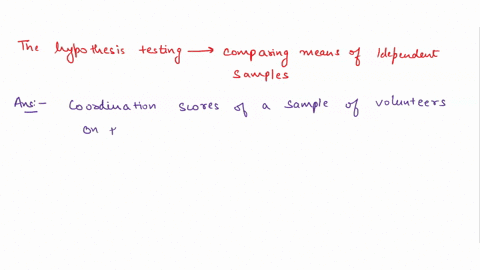 The hypothesis testing → comparing means of 1dependent
samples
Ans:- Coordination scores of a sample of volunteers
on t